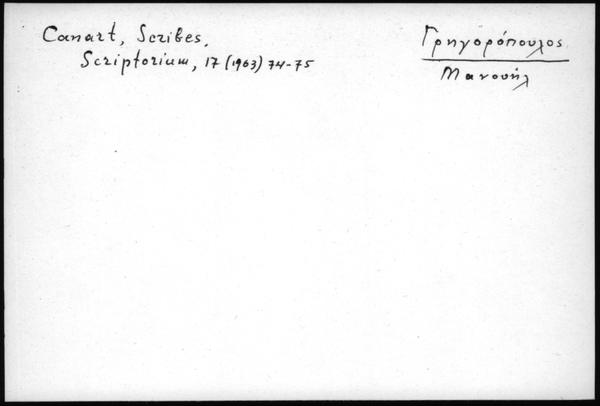 Canart, Scribes,
Scriptorium, 17 (1963) 74-75
Γρηγορόπουλος
Μανουήλ